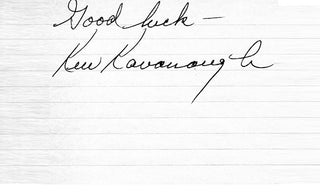 Good luck —
Ken Kavanaugh